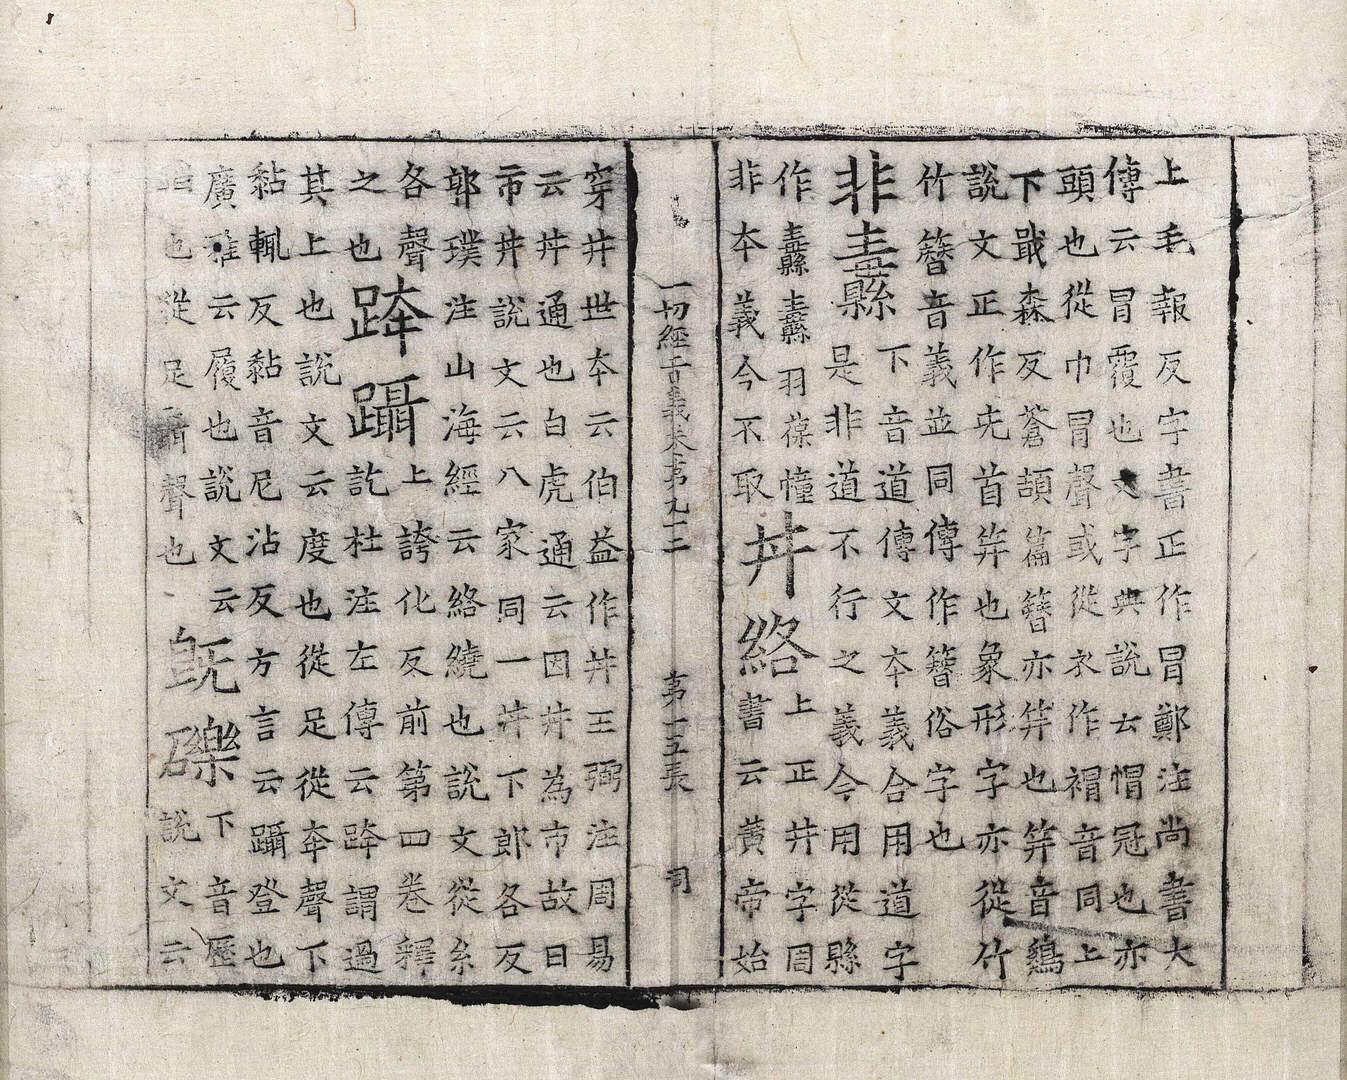 上毛報反字書正作冃鄭注尚書大
傳云冃覆也文字典說云帽冠也亦
頭也從巾冃聲或從衣作䙃音同上
下戢森反蒼頡篇簪亦笄也笄音鷄
說文正作兂首笄也象形字亦從竹
竹簪音義並同傳作簪俗字也
非𧀎下音道傳文本義合用道字
是非道不行之義今用從縣
作𧀎𧀎羽葆幢
非本義今不取丼絡上正井字周
書云黃帝始
一切經音義卷第九十二 第十五張 詞
穿丼世本云伯益作丼王弼注周易
云丼通也白虎通云因丼為市故曰
市丼說文云八家同一丼下郎各反
郭璞注山海經云絡繞也說文從糸
各聲跨躡上誇化反前第四卷釋
之也訖杜注左傳云跨謂過
其上也說文云度也從足從夸聲下
黏輒反黏音尼沾反方言云躡登也
廣雅云履也說文云
也從足聶聲也旣礫下音歷
說文云